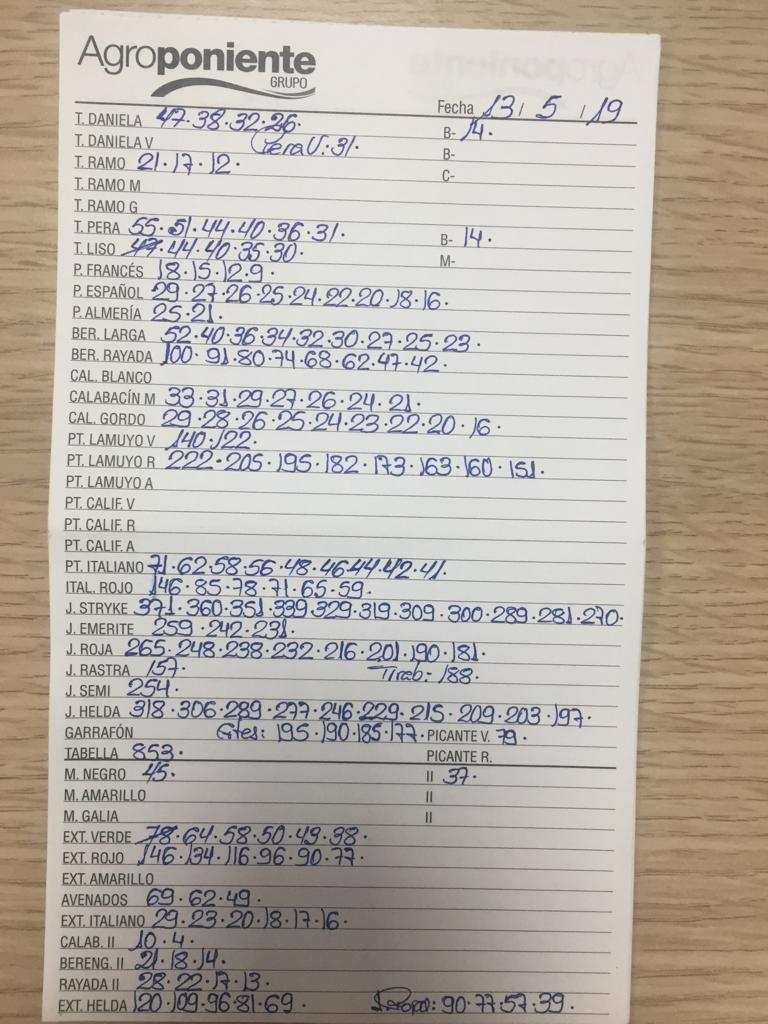 Agroponiente
GRUPO
Fecha 13 / 5 / 19
T. DANIELA 47.38.32.26. B- 14.
T. DANIELA V Pera V: 31. B-
T. RAMO 21.17.12. C-
T. RAMO M
T. RAMO G
T. PERA 55.51.44.40.36.31. B- 14.
T. LISO 47.44.40.35.30. M-
P. FRANCÉS 18.15.12.9.
P. ESPAÑOL 29.27.26.25.24.22.20.18.16.
P. ALMERÍA 25.21.
BER. LARGA 52.40.36.34.32.30.27.25.23.
BER. RAYADA 100.91.80.74.68.62.47.42.
CAL. BLANCO
CALABACÍN M 33.31.29.27.26.24.21.
CAL. GORDO 29.28.26.25.24.23.22.20.16.
PT. LAMUYO V 140.122.
PT. LAMUYO R 222.205.195.182.173.163.160.151.
PT. LAMUYO A
PT. CALIF. V
PT. CALIF. R
PT. CALIF. A
PT. ITALIANO 71.62.58.56.48.46.44.42.41.
ITAL. ROJO 146.85.78.71.65.59.
J. STRYKE 371.360.351.339.329.319.309.300.289.281.270.
J. EMERITE 259.242.231.
J. ROJA 265.248.238.232.216.201.190.181.
J. RASTRA 157. Tirab: 188.
J. SEMI 254.
J. HELDA 318.306.289.277.246.229.215.209.203.197.
GARRAFÓN Gtes: 195.190.185.177. PICANTE V. 79.
TABELLA 853. PICANTE R.
M. NEGRO 45. II 37.
M. AMARILLO II
M. GALIA II
EXT. VERDE 78.64.58.50.49.38.
EXT. ROJO 146.134.116.96.90.77.
EXT. AMARILLO
AVENADOS 69.62.49.
EXT. ITALIANO 29.23.20.18.17.16.
CALAB. II 10.4.
BERENG. II 21.18.14.
RAYADA II 28.22.17.13.
EXT. HELDA 120.109.96.81.69. 90.77.57.39.